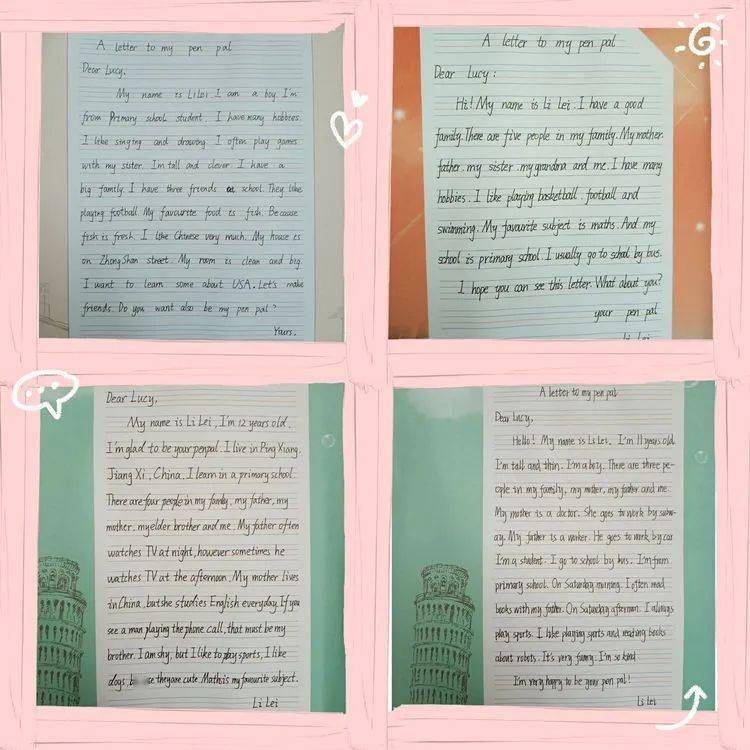 A letter to my pen pal
Dear Lucy,
My name is LiLei. I am a boy. I'm
from Primary school student. I have many hobbies.
I like singing and drawing. I often play games
with my sister. I'm tall and clever. I have a
big family. I have three friends at school. They like
playing football. My favourite food is fish. Because
fish is fresh. I like Chinese very much. My house is
on ZhongShan street. My room is clean and big.
I want to learn some about USA. Let's make
friends. Do you want also be my pen pal?
Yours.
A letter to my pen pal
Dear Lucy:
Hi! My name is Li Lei. I have a good
family. There are five people in my family. My mother.
father. my sister. my grandma and me. I have many
hobbies. I like playing basketball. football and
swimming. My favourite subject is maths. And my
school is primary school. I usually go to school by bus.
I hope you can see this letter. What about you?
your pen pal
Li Lei
Dear Lucy,
My name is Li Lei. I'm 12 years old.
I'm glad to be your penpal. I live in Ping Xiang.
Jiang Xi, China. I learn in a primary school.
There are four people in my family, my father, my
mother, my elder brother and me. My father often
watches TV at night, however sometimes he
watches TV at the afternoon. My mother lives
in China, but she studies English everyday. If you
see a man playing the phone call, that must be my
brother. I am shy, but I like to play sports, I like
dogs, they are cute. Maths is my favourite subject.
Li Lei
A letter to my pen pal
Dear Lucy,
Hello! My name is Li Lei. I'm 11 years old.
I'm tall and thin. I'm a boy. There are three pe-
ople in my family, my mother, my father and me.
My mother is a doctor. She goes to work by subw-
ay. My father is a worker. He goes to work by car.
I'm a student. I go to school by bus. I'm from
primary school. On Saturday morning. I often read
books with my father. On Saturday afternoon. I always
play sports. I like playing sports and reading books
about robots. It's very funny. I'm so kind.
I'm very happy to be your pen pal!
Li Lei